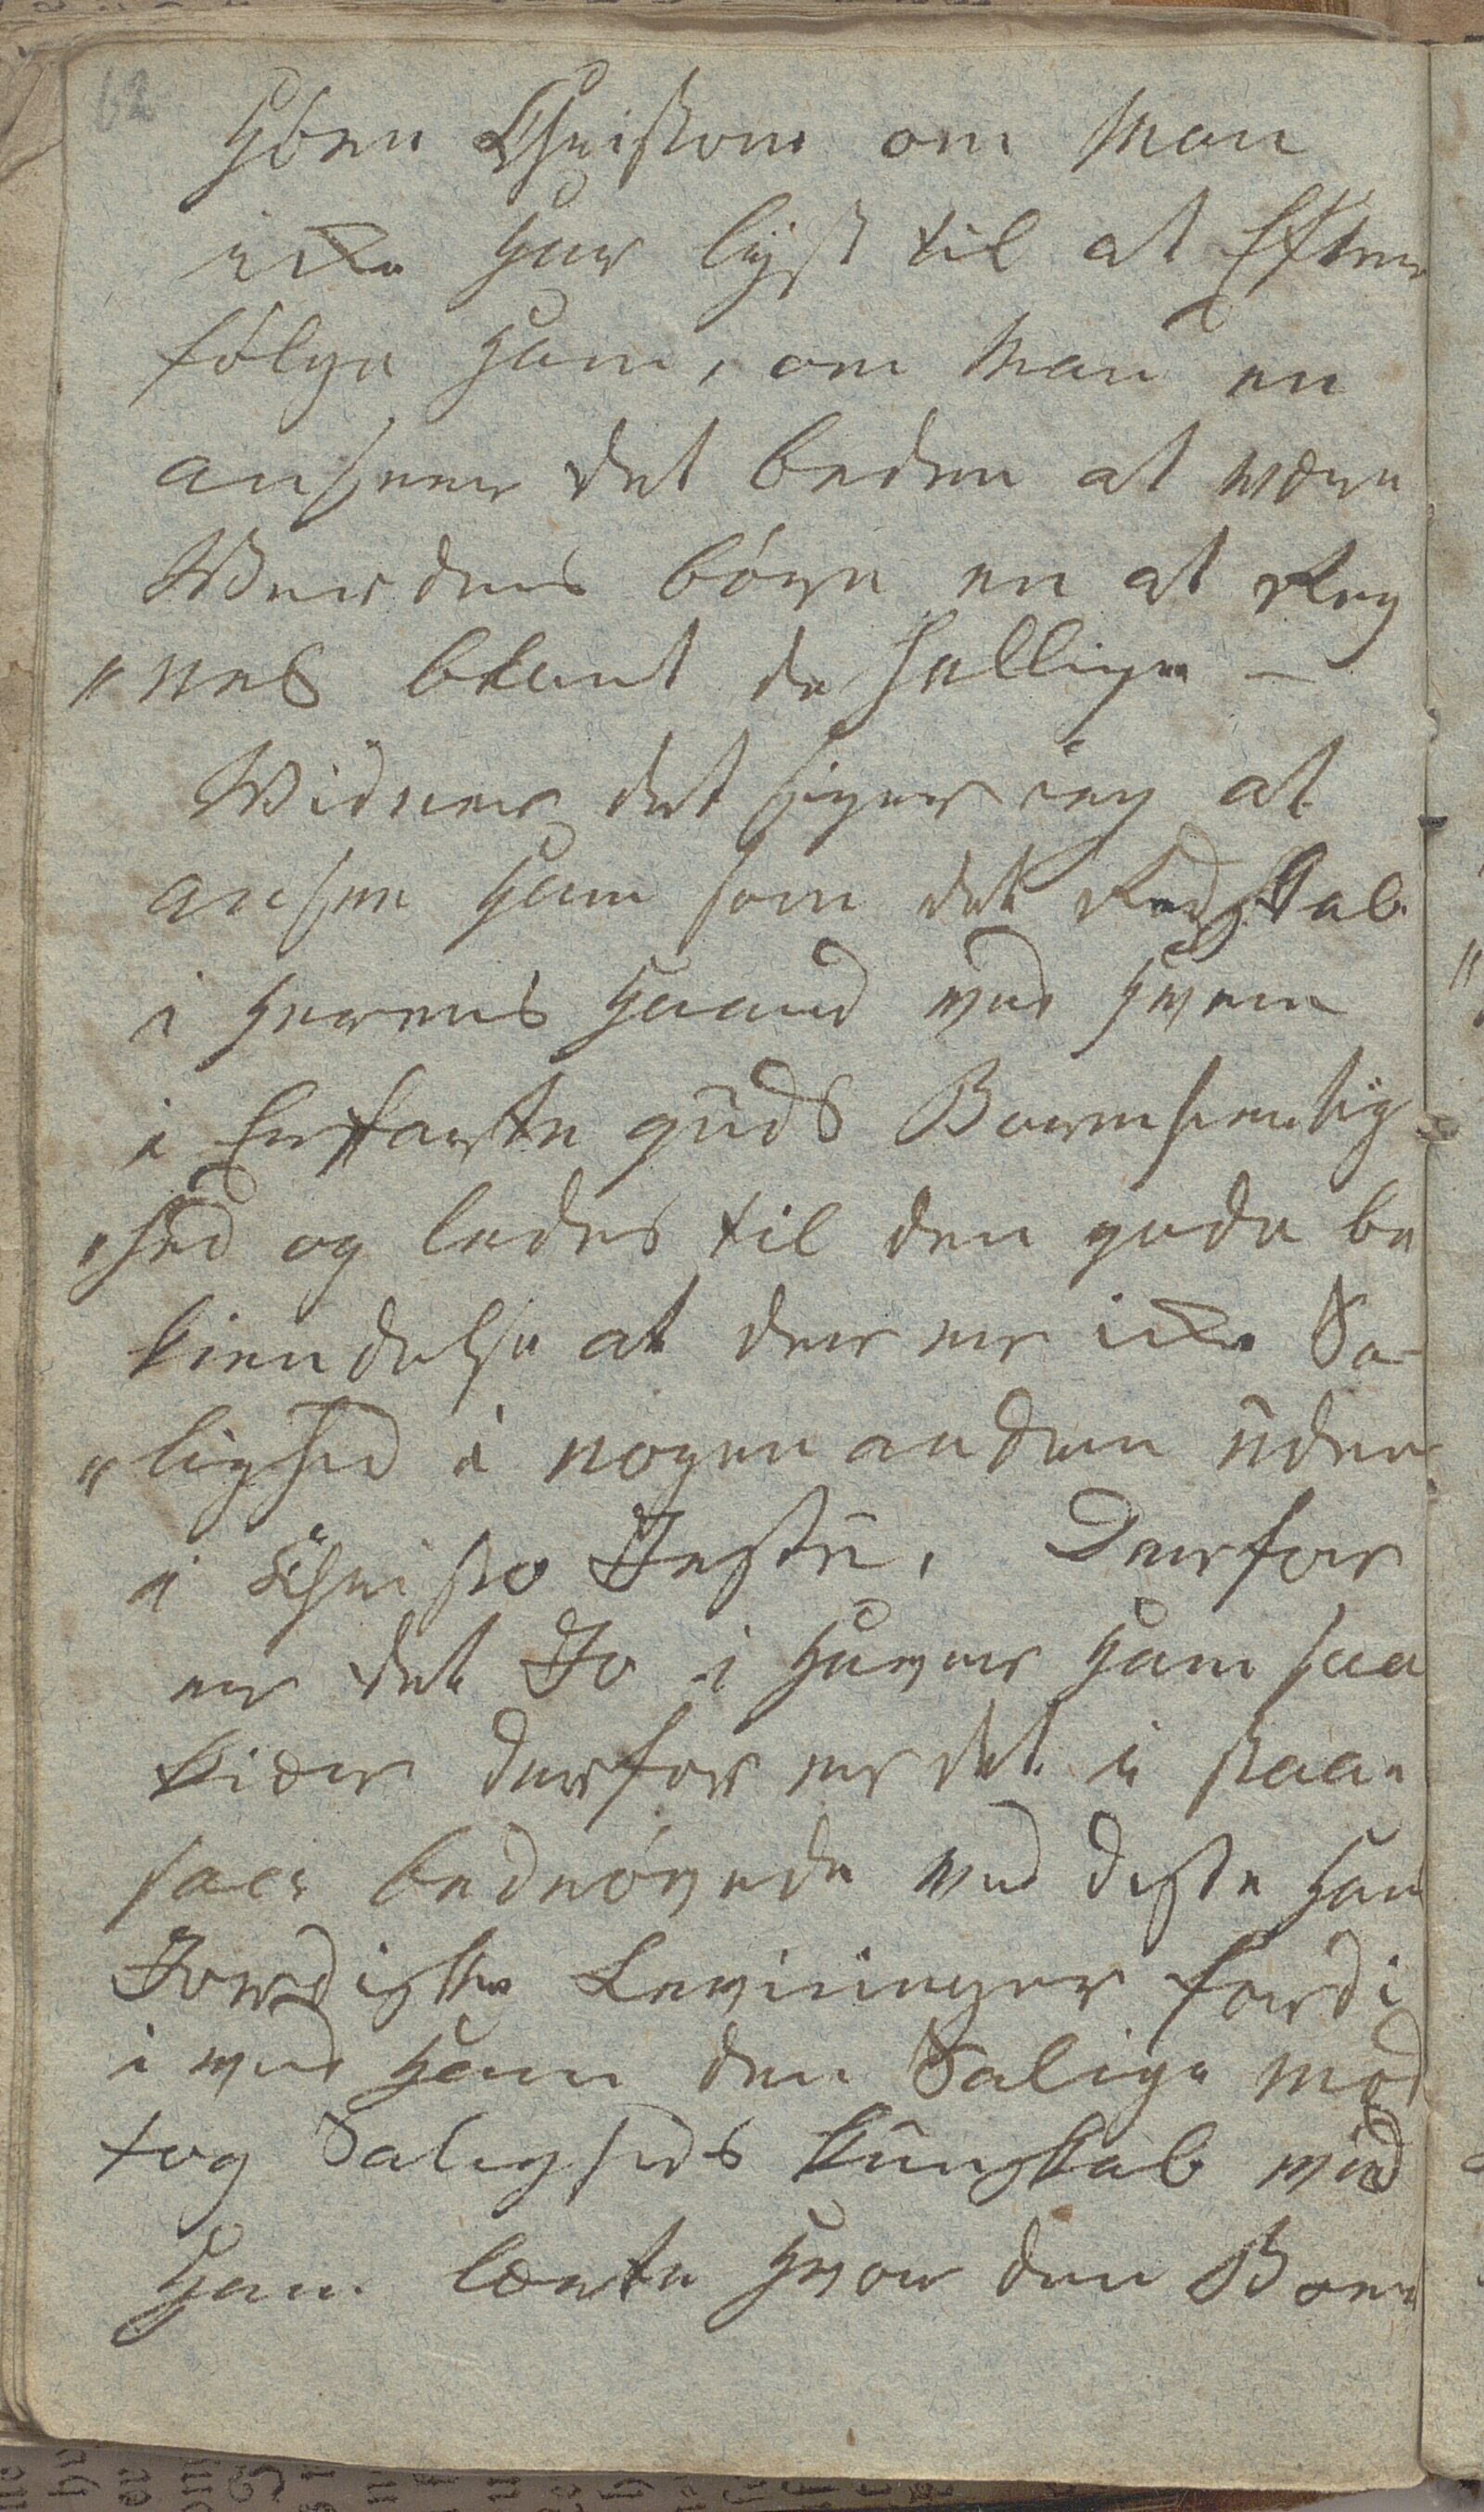 62
Christom om Man
icke har lyst til at Efter
følge ham, om Man en
anseer det bedre at være
Werdens børn en at Reg
"nes blant de hellige –
Widner det siger ieg at
ansee ham som det Redskab
i herens Haand ved hvem
i Erfarte guds Barmhertig
"hed og ledes til den gode be
kiendelse at der er icke Sa-
"lighed i nogen anden uden
i Christo Jesu, Derfor
er det Jo i haver ham saa
kiær derfor er det i staar
saa bedrøvede ved disse hans
Jordiske Levninger fordi
i ved ham den Salige mod
tog Saligheds kundskab ved
ham lærte hvor den Barm